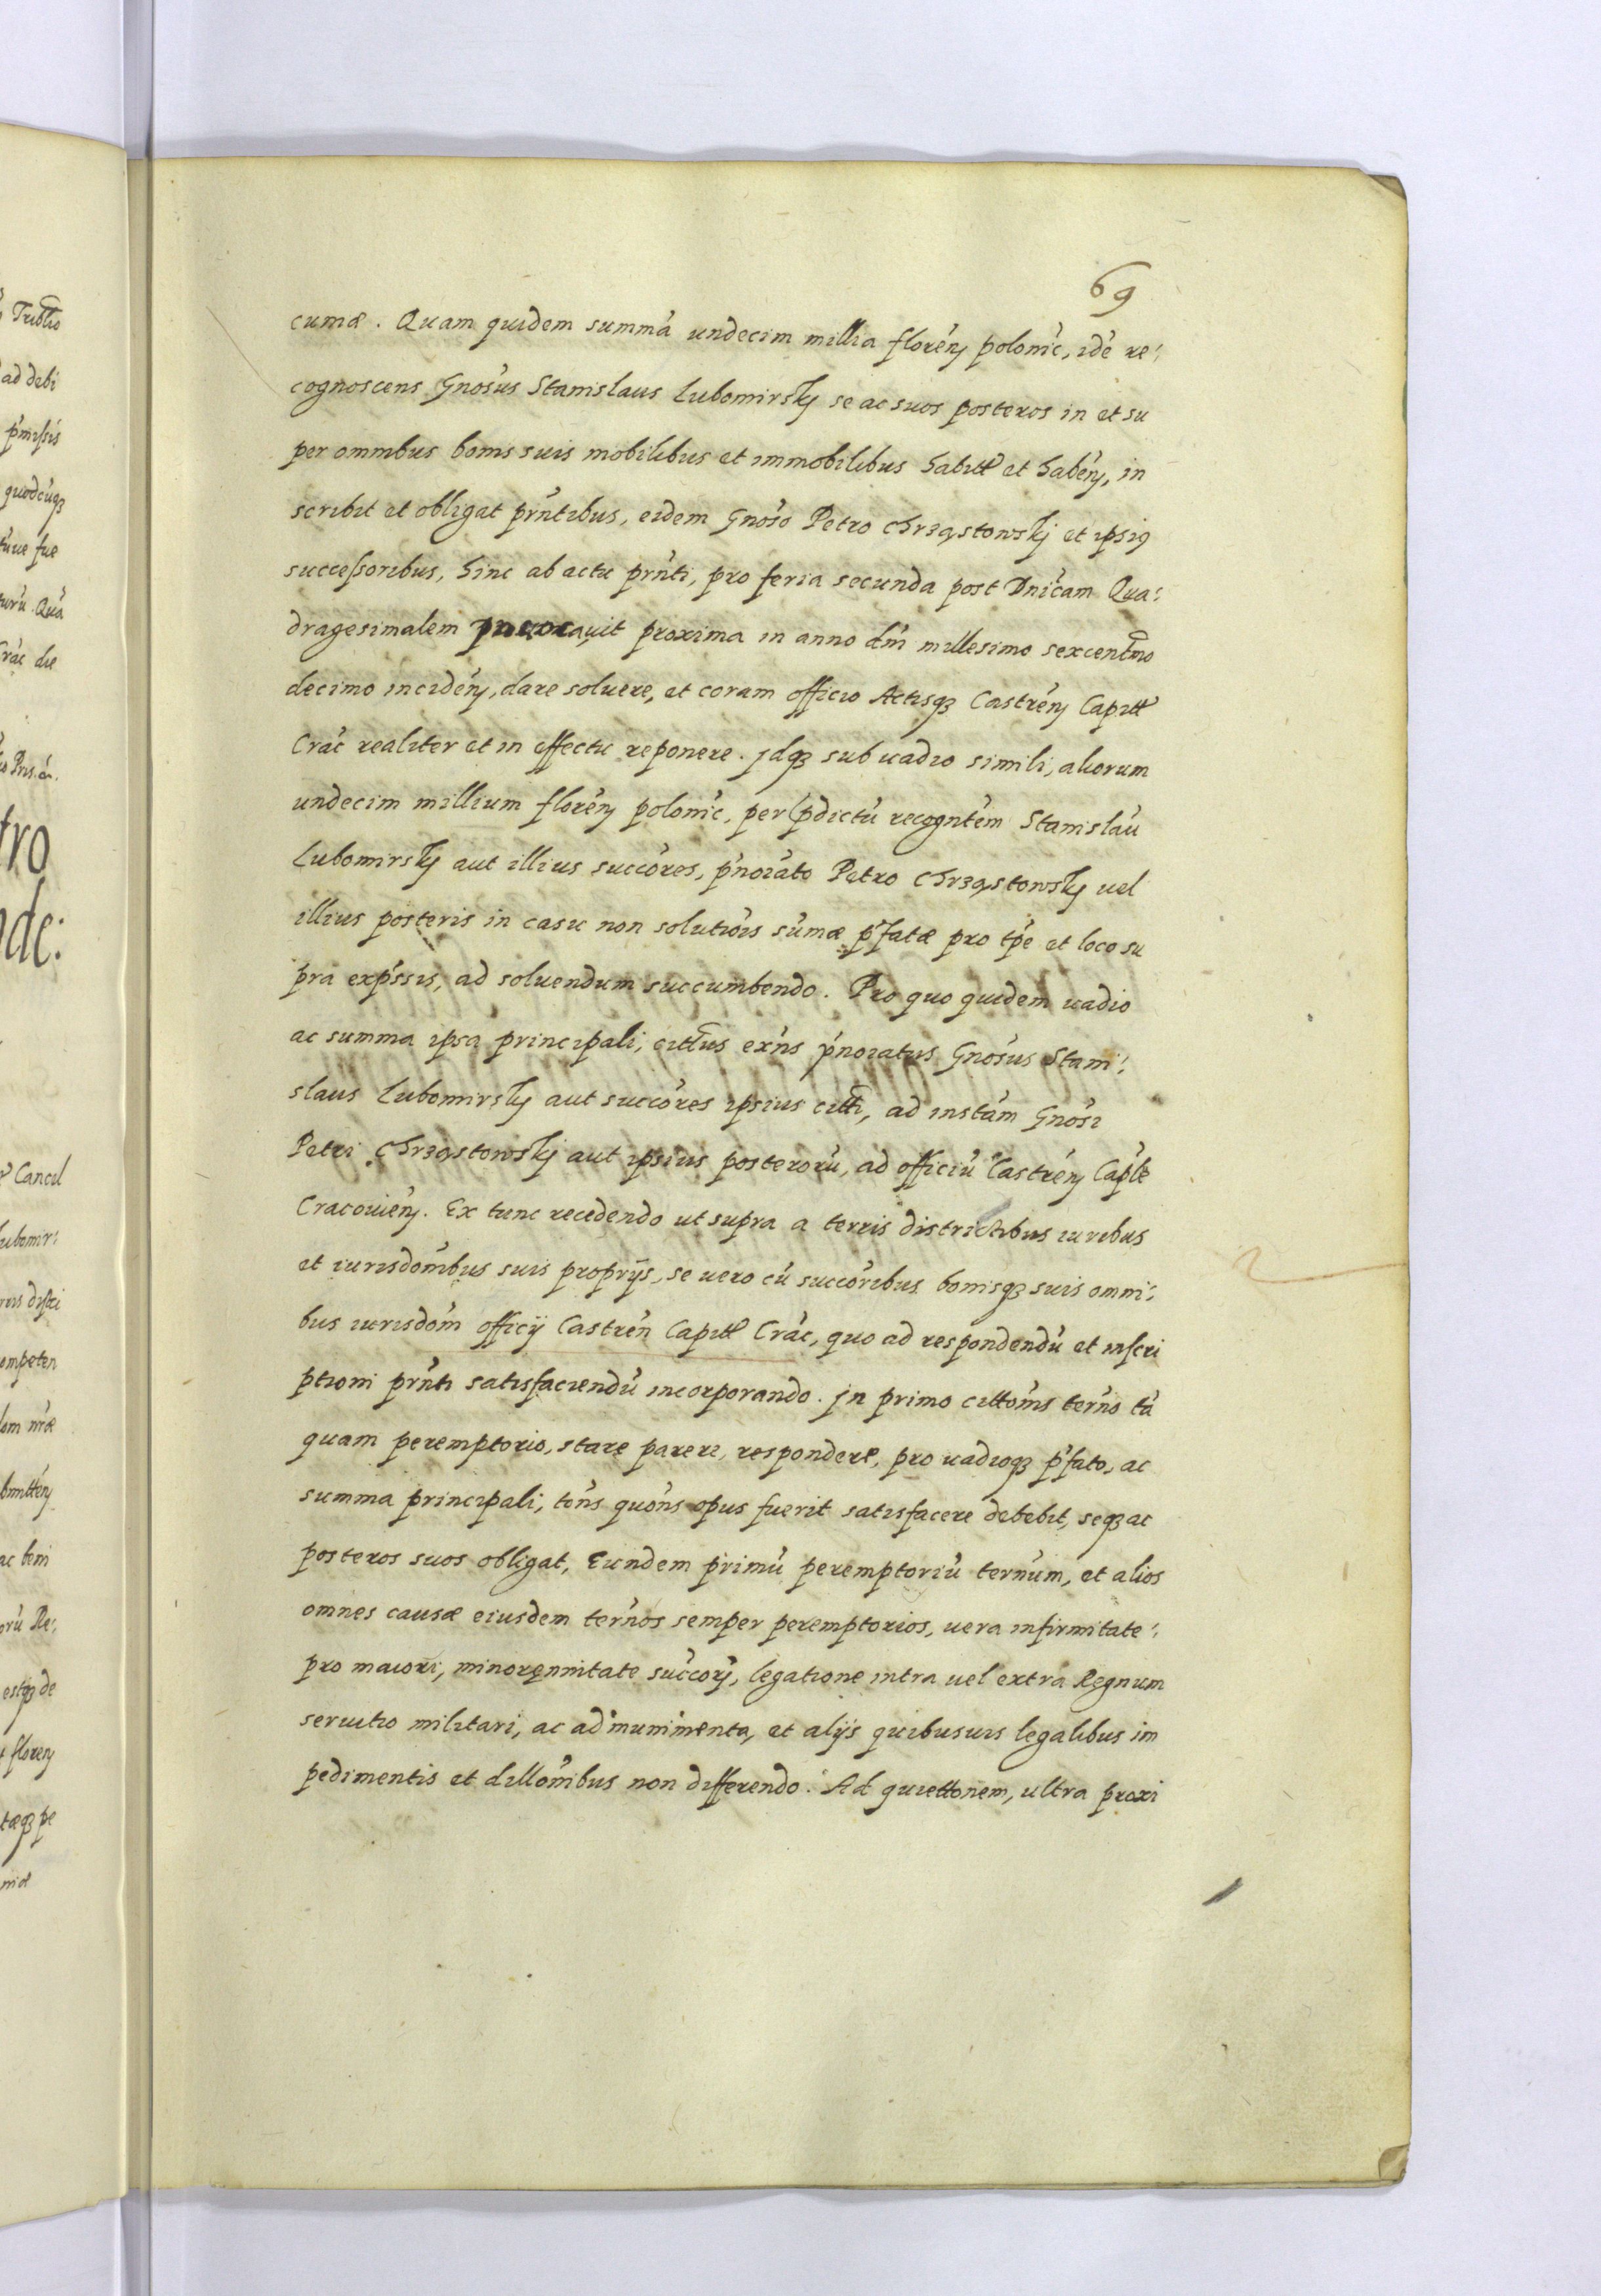 69
cumæ. Quam quidem summā undecim millia florēn polonīc, idē re:
cognoscens Gnōsus Stanislaus Lubomirsky se ac suos posteros in et su
per omnibus bonis suis mobilibus et immobilibus habitt et habēn, in
scribit et obligat prn̄tibus, eidem Gnōso Petro Chrząstowskj et ipsiꝰ
successoribus, hinc ab actu prn̄ti, pro feria secunda post Dnīcam Qua:
dragesimalem Inuocauit proxima in anno dn̄i millesimo sexcentmo
decimo incidēn, dare soluere, et coram officio Actisqꝫ Castrēn Capitt
Crāc realiter et in effectu reponere. Jdqꝫ sub uadio simili, aliorum
undecim millium florēn polonīc, per pdictū recognt̄em Stanislaū
Lubomirsky aut illius succōres, p̄noīato Petro Chrząstowsky uel
illius posteris in casu non solutiōis sūmæ p̄fatæ pro tp̄e et loco su
pra exp̄ssis, ad soluendum succumbendo. Pro quo quidem uadio
ac summa ipsa principali, citt̄us exn̄s p̄noīatus Gnōsus Stani:
slaus Lubomirsky aut succōres ipsius citt̄i, ad instām Gnōsi
Petri Chrząstowskj aut ipsius posterorū, ad officiū Castrēn Caplē
Cracouiēn. Ex tunc recedendo ut supra a terris districtibus iuribus
et iurisdōnibus suis proprijs, se uero cū succōribus bonisqꝫ suis omni:
bus iurisdōni officij Castrēn Capitt Crāc, quo ad respondendū et inscri
ptioni prn̄ti satisfaciendū incorporando. Jn primo cittōnis tern̄o tā
quam peremptorio, stare parere, respondere, pro uadioqꝫ p̄fato, ac
summa principali, tōns quōns opus fuerit satisfacere debebit, seqꝫ ac
posteros suos obligat, Eundem primū peremptoriū tern̄um, et alios
omnes causæ eiusdem tern̄os semper peremptorios, uera infirmitate:
pro maiori, minorennitate succorū, legatione intra uel extra Regnum
seruitio militari, ac ad munimenta, et alijs quibusuis legalibus im
pedimentis et dillōnibus non differendo. Ad quiettonem, ultra proxi